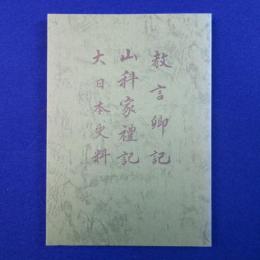 教言卿記
山科家禮記
大日本史料